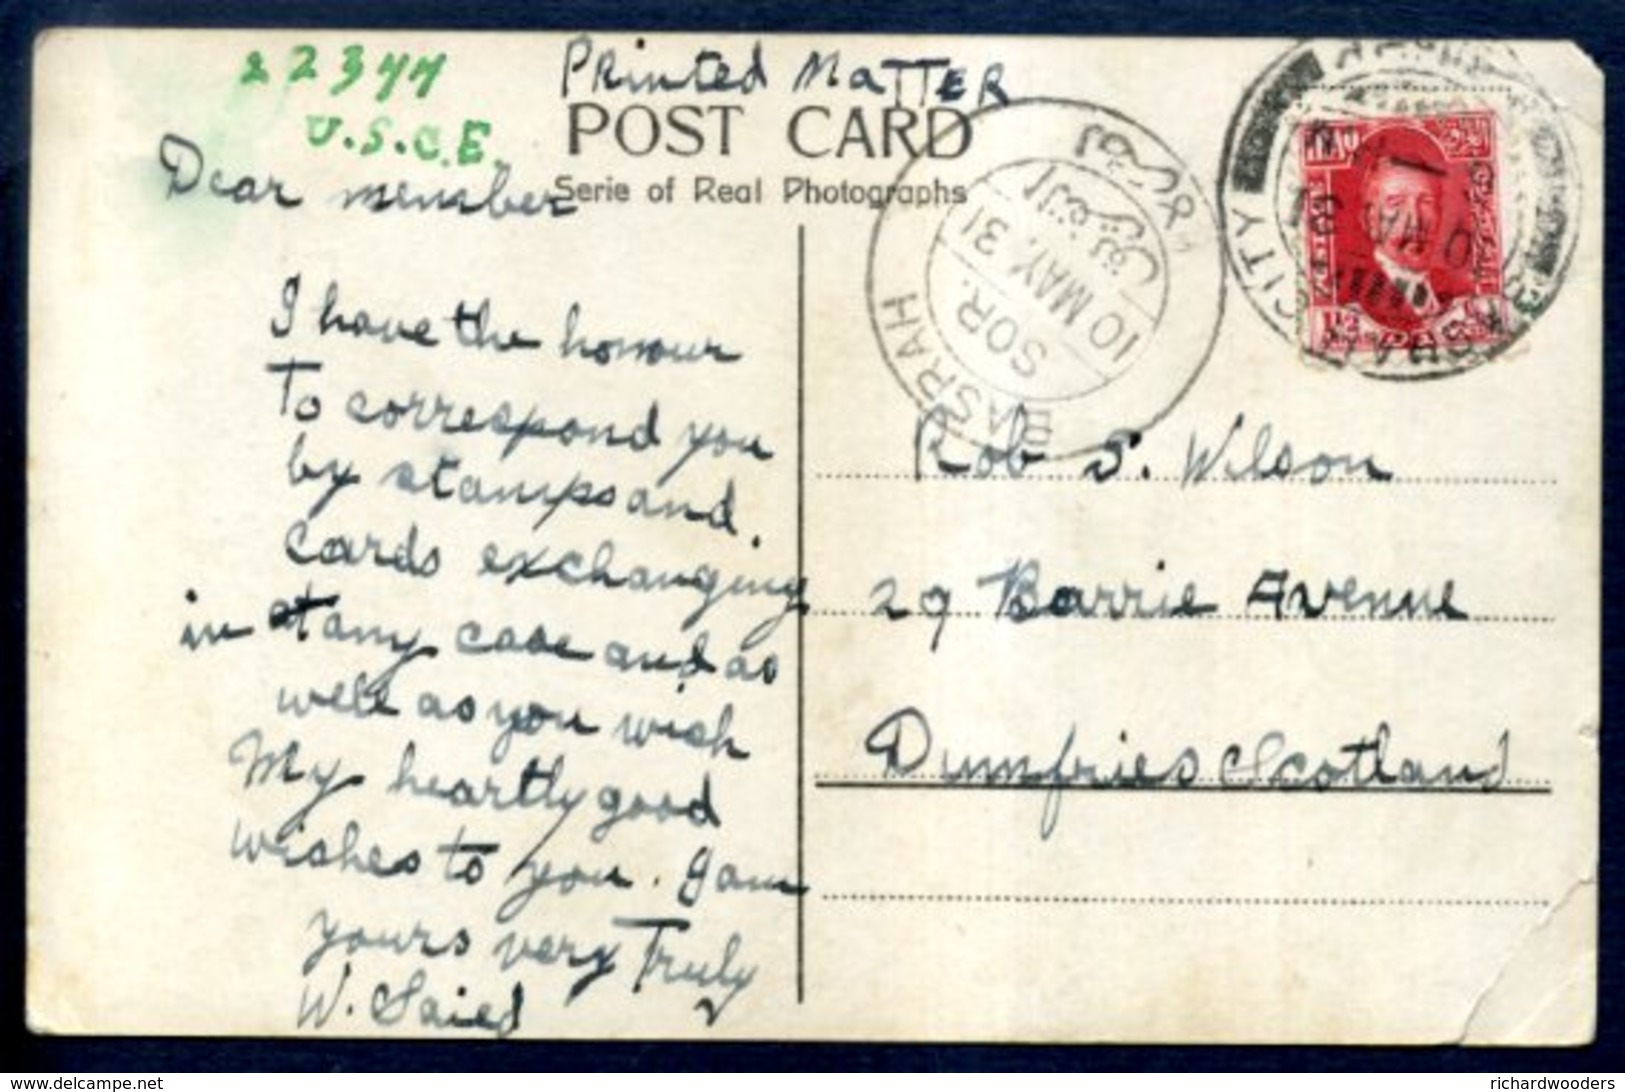 22344
U.S.C.E.
Printed Matter
POST CARD
Serie of Real Photographs
Dear member
I have the honour
To correspond you
by stamps and
cards exchanging
in at any case and as
well as you wish
My heartly good
wishes to you. I am
yours very Truly
W. Saied
BASRAH
SOR.
10 MAY. 31
البصرة
BASRAH CITY
10 MAY
31
1½
Rob S. Wilson
29 Barrie Avenue
Dumfries Scotland
richardwooders